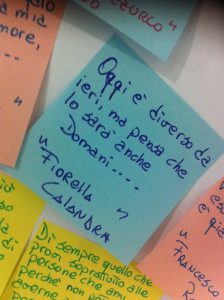 ZURCO"
a mia
more,
Oggi è diverso da
ieri, ma pensa che
lo sarà anche
Domani....
"Fiorella
CALANDRA"
Di sempre quello che
provi soprattutto alle
persone che ami
perché non
è già
"FRANCESCO